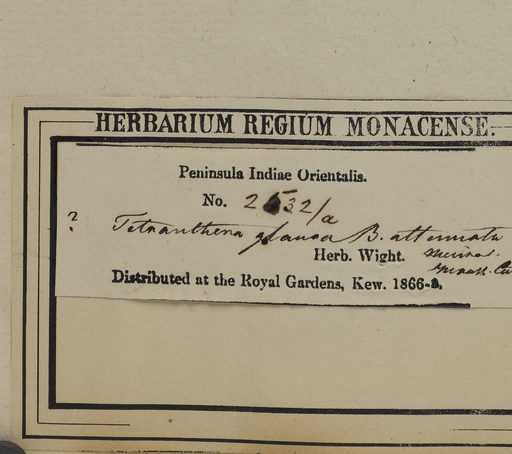 HERBARIUM REGIUM MONACENSE.
Peninsula Indiae Orientalis.
No. 2532/a
? Tetranthera glauca B. attenuata
Herb. Wight. Meisn.
Distributed at the Royal Gardens, Kew. 1866-